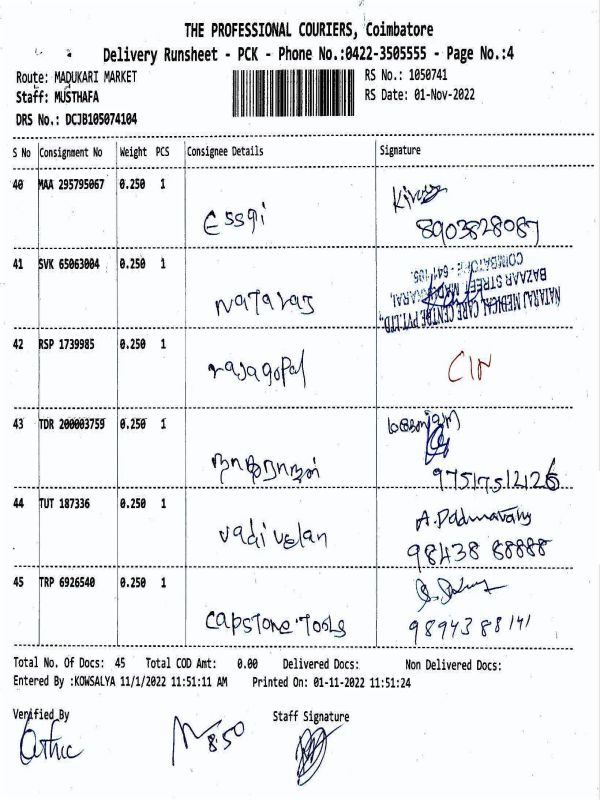 THE PROFESSIONAL COURIERS, Coimbatore
Delivery Runsheet - PCK - Phone No.:0422-3505555 - Page No.:4
Route: MADUKARI MARKET RS No.: 1050741
Staff: MUSTHAFA RS Date: 01-Nov-2022
DRS No.: DCJB105074104
S No Consignment No Weight PCS Consignee Details Signature
40 MAA 295795067 0.250 1
Essgi
8903828087
41 SVK 65063004 0.250 1
Nataraj
NATARAJ MEDICAL CARE CENTRE PVT.LTD.,
BAZAAR STREET MADUKKARAI,
COIMBATORE - 641 105.
42 RSP 1739985 0.250 1
rajagopal
43 TDR 200003759 0.250 1
44 TUT 187336 0.250 1
vadivelan
A. Padmavathy
98438 88888
45 TRP 6926540 0.250 1
capstone tools
98943 88141
Total No. Of Docs: 45 Total COD Amt: 0.00 Delivered Docs: Non Delivered Docs:
Entered By :KOWSALYA 11/1/2022 11:51:11 AM Printed On: 01-11-2022 11:51:24
Verified By Staff Signature
8:50